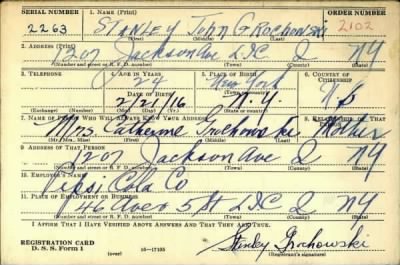 SERIAL NUMBER 1. NAME (Print) ORDER NUMBER
2263 STANLEY John GROCHOWSKI 2102
(First) (Middle) (Last)
2. ADDRESS (Print)
1207 Jackson Ave L.I.C. NY
(Number and street or R. F. D. number) (Town) (County) (State)
3. TELEPHONE 4. AGE IN YEARS 5. PLACE OF BIRTH 6. COUNTRY OF CITIZENSHIP
24 New York
DATE OF BIRTH
2/21/16 N.Y.
(Exchange) (Number) (Mo.) (Day) (Yr.) (State or county)
7. NAME OF PERSON WHO WILL ALWAYS KNOW YOUR ADDRESS 8. RELATIONSHIP OF THAT PERSON
Mrs. Catherine Grochowski Mother
(Mr., Mrs., Miss) (First) (Middle) (Last)
9. ADDRESS OF THAT PERSON
1207 Jackson Ave NY
(Number and street or R. F. D. number) (Town) (County) (State)
10. EMPLOYER'S NAME
Pepsi Cola Co
11. PLACE OF EMPLOYMENT OR BUSINESS
46 Ave & 5 St L.I.C. NY
(Number and street or R. F. D. number) (Town) (County) (State)
I AFFIRM THAT I HAVE VERIFIED ABOVE ANSWERS AND THAT THEY ARE TRUE.
REGISTRATION CARD
D. S. S. Form 1 (over) 16—17105 Stanley Grochowski
(Registrant's signature)